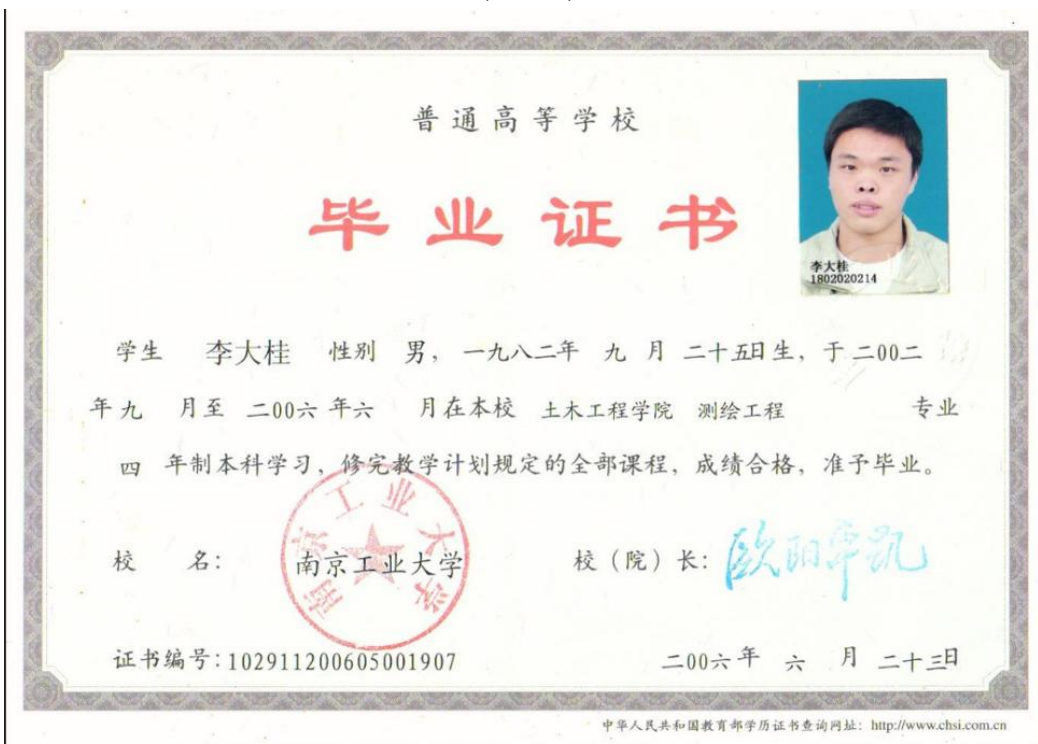 普通高等学校
毕业证书
李大桂
1802020214
学生 李大桂 性别 男，一九八二年 九 月 二十五日生，于二00二
年九 月至 二00六 年六 月在本校 土木工程学院 测绘工程 专业
四 年制本科学习，修完教学计划规定的全部课程，成绩合格，准予毕业。
南京工业大学
校 名： 南京工业大学 校（院）长：欧阳平凯
证书编号：102911200605001907 二00六年 六 月 二十三日
中华人民共和国教育部学历证书查询网址：http://www.chsi.com.cn